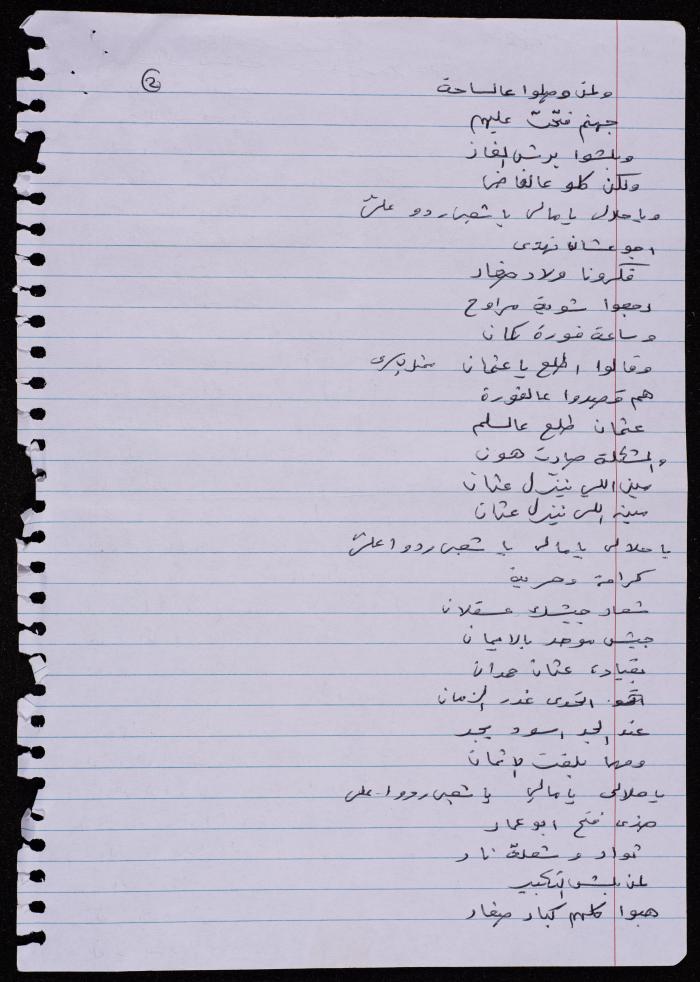 2
ولمن وصلوا عالساحة
جهنم فتحت عليهم
وبلشوا برش الغاز
ولكن كلو عالفاضي
ويا حلالي يا مالي يا شعبي ردو علي
اجو عشان نهدى
فكرونا ولاد صغار
رجعوا شوية مراوح
وساعة فورة كمان
وقالوا اطلع يا عثمان
هم قصدوا عالفورة
عثمان طلع عالسلم
والمشكلة صارت هون
مين اللي نيزل عثمان
مينه اللي نيزل عثمان
يا حلالي يا مالي يا شعبي ردوا علي
كرامة وحرية
شعار جيشك عسقلان
جيش موحد بالايمان
بقيادة عثمان حمدان
اتحدى غدر الزمان
عند الجد اسود بجد
ومهما بلغت الاثمان
يا حلالي يا مالي يا شعبي رودوا علي
هذي فتح ابو عمار
ثوار وشعلة نار
لمن بلش التكبير
هبوا كلهم كبار صغار